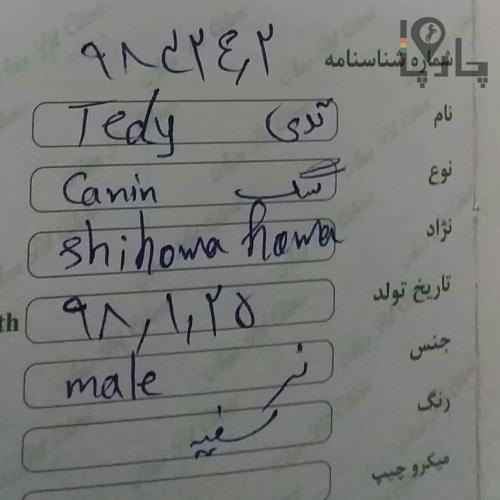 شماره شناسنامه ۹۸۵۲۴,۲
نام تدی Tedy
نوع سگ Canin
نژاد shihowa howa
تاریخ تولد ۹۸,۱,۲۵ th
جنس نر male
رنگ سفید
میکرو چیپ
چارپا